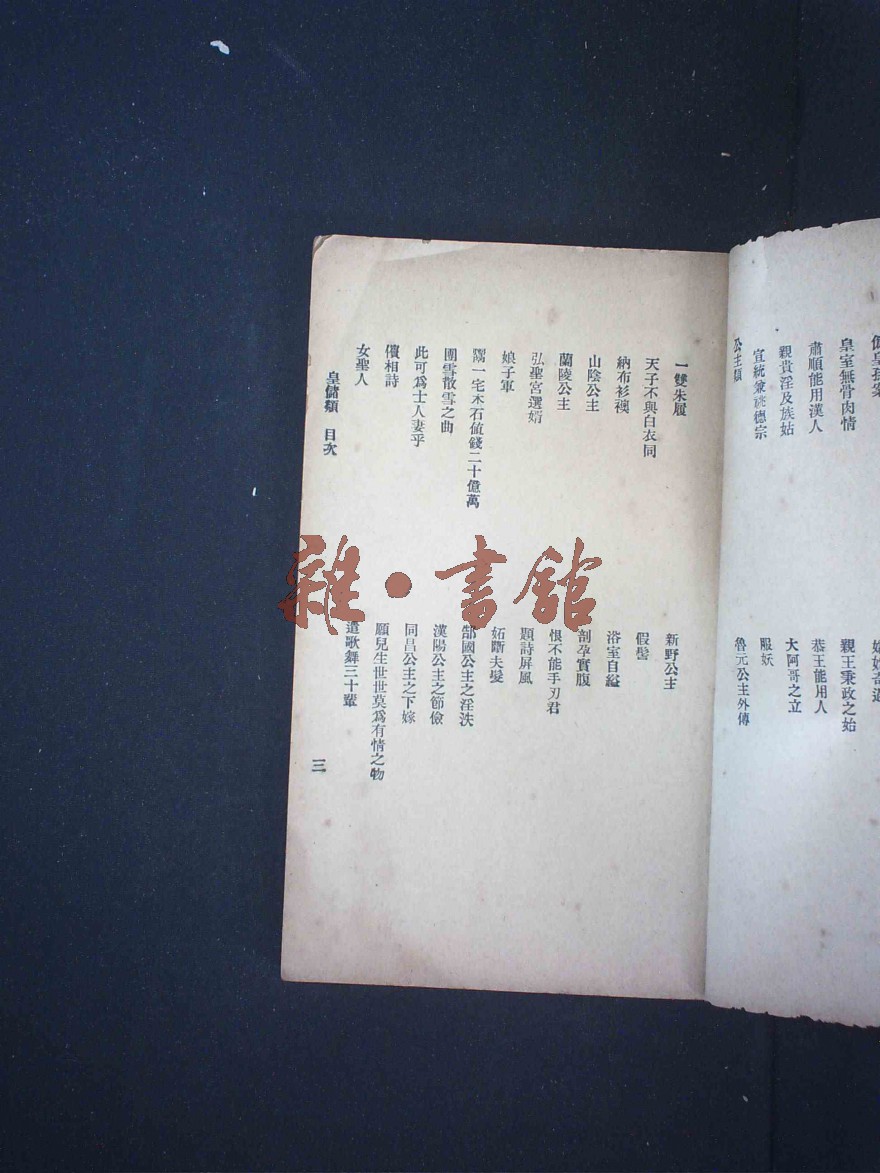 皇室無骨肉情
肅順能用漢人
親貴淫及族姑
宣統兼祧德宗
公主類
親王秉政之始
恭王能用人
大阿哥之立
服妖
魯元公主外傳
一雙朱履
天子不與白衣同
納布衫襖
山陰公主
蘭陵公主
弘聖宮選婿
娘子軍
隣一宅木石値錢二十億萬
團雪散雪之曲
此可爲士人妻乎
儐相詩
女聖人
新野公主
假髻
浴室自縊
剖孕實腹
恨不能手刃君
題詩屏風
妬斷夫髮
郜國公主之淫泆
漢陽公主之節儉
同昌公主之下嫁
願兒生世世莫爲有情之物
遣歌舞三十輩
皇儲類 目次
三
雜·書館